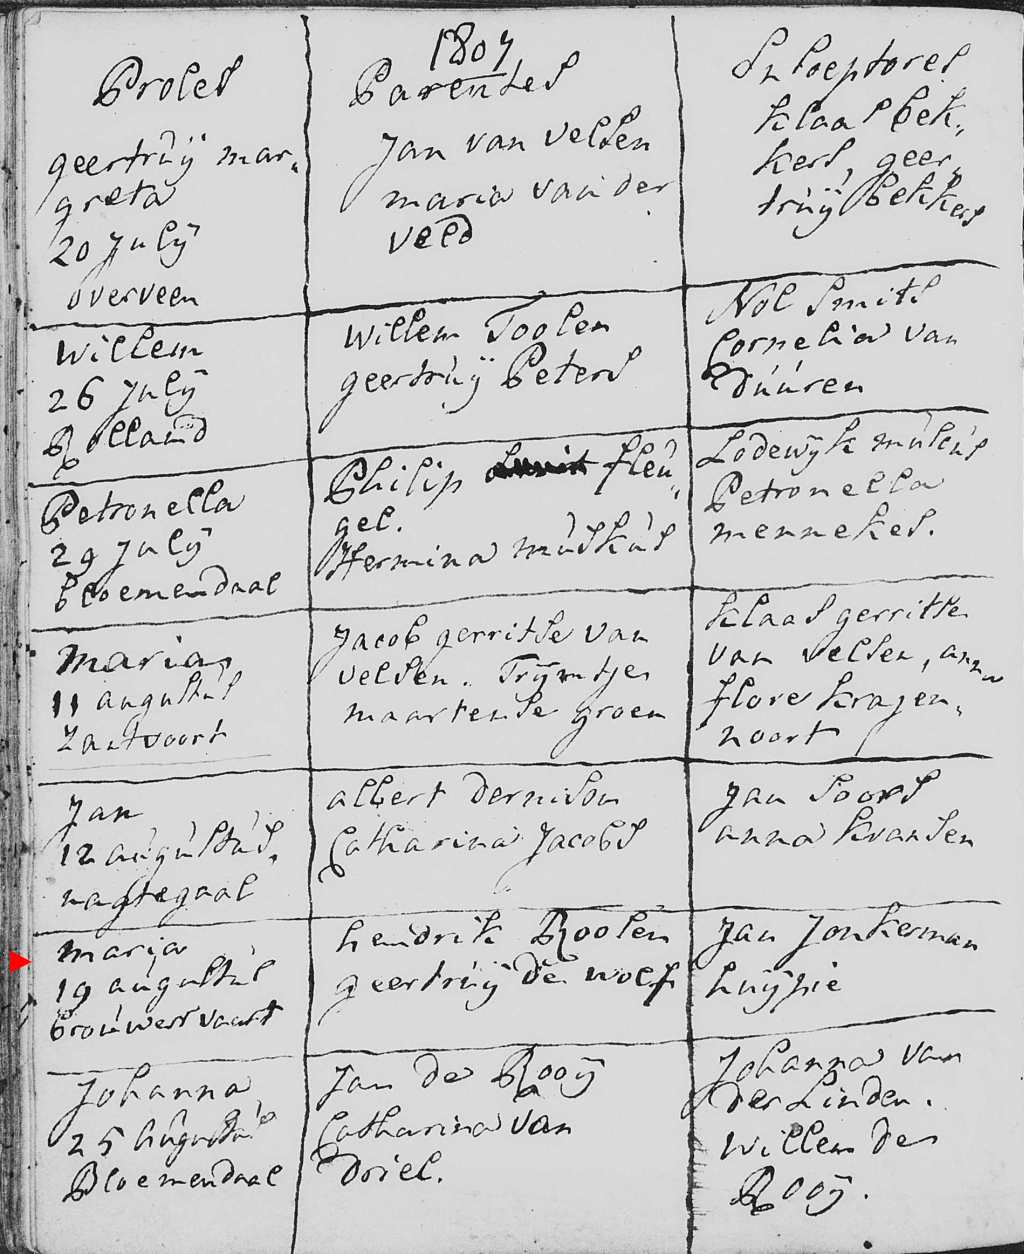 1807
Proles
geertrúÿ mar„
greta
20 July
overveen
Parentes
Jan van velsen
maria van der
veld
Susceptores
klaas bek„
kers, geer„
trúÿ Bekkers
Willem
26 July
Rolland
Willem Toolen
geertrúÿ Peters
Nol Smits
Cornelia van
Dúúren
Petronella
29 July
bloemendaal
Philip fleú„
gel.
Hermina múskús
Lodewyk múskús
Petronella
mennekes.
maria
11 augustús
Zantvoort
Jacob gerritse van
velsen. Trÿntje
maartense groen
klaas gerritse
van velsen, anna
flore krajen„
noort
Jan
12 aúgústús.
nagtegaal
albert dernison
Catharina Jacobs
Jan Soors
anna kransen
marija
19 aúgústús
broúwers vaart
hendrik Roolen
geertrúÿ de wolf
Jan Jonkerman
Johanna
25 aúgústús
Bloemendaal
Jan de Rooÿ
Catharina van
Driel.
Johanna van
der Linden.
Willem de
Rooÿ.